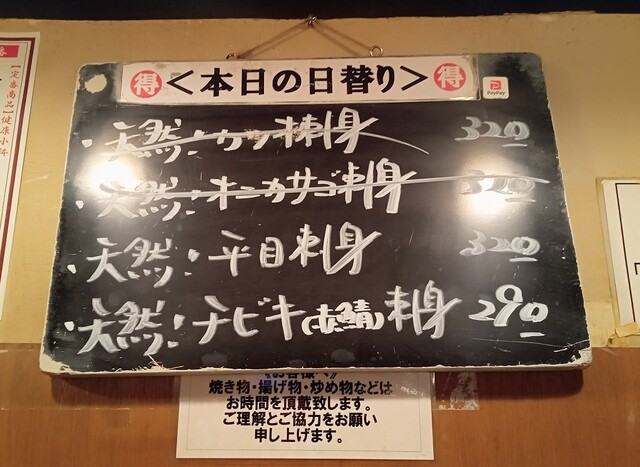 得 <本日の日替り> 得
PayPay
・天然!カツオ刺身 320
・天然・オニカサゴ刺身
・天然・平目刺身 320
・天然!チビキ(赤鯖)刺身 290
【定番商品】健康小鉢
焼き物・揚げ物・炒め物などは
お時間を頂戴致します。
ご理解とご協力をお願い
申し上げます。